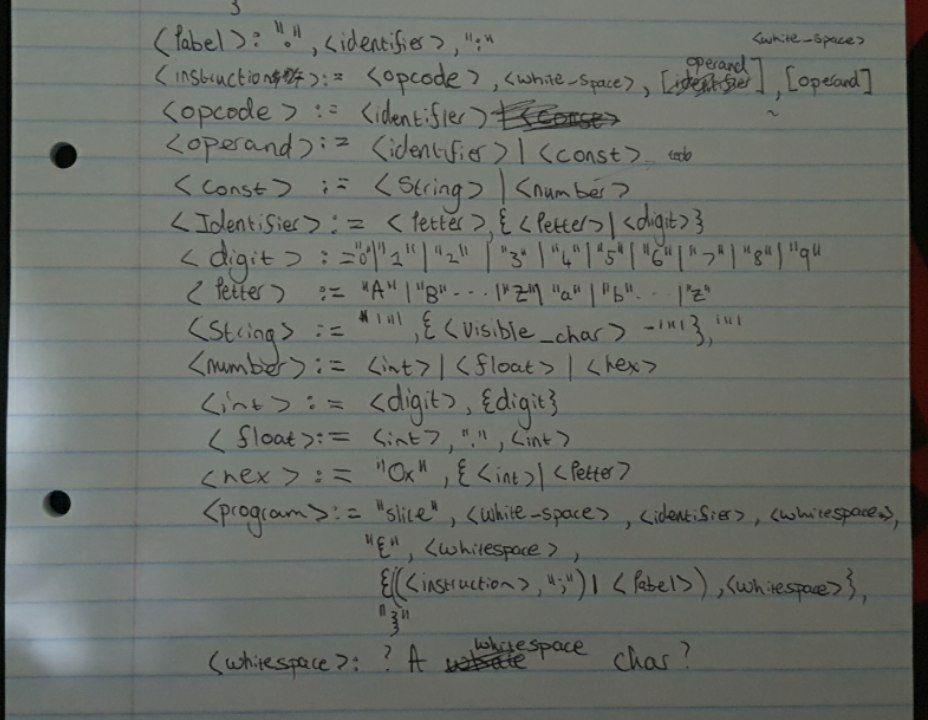 }
<label>: ".", <identifier>, ":"
<white-space>
<instruction>:= <opcode>, <white-space>, [operand], [operand]
<opcode> := <identifier>
<operand>:= <identifier> | <const>
<const> := <String> | <number>
<Identifier>:= <letter>,{<letter>|<digit>}
<digit> :="0"|"1"|"2" |"3"|"4"|"5"|"6"|"7"|"8"|"9"
<letter> := "A"|"B"...|"Z"|"a"|"b"...|"z"
<String> := '"',{<visible_char> -'"'},'"'
<number>:= <int>|<float>|<hex>
<int> := <digit>, {digit}
<float>:= <int>,".",<int>
<hex> := "0x", {<int>|<letter>
<program>:= "slice", <white-space>, <identifier>, <whitespace>,
"{", <whitespace>,
{((<instruction>,";")|<label>),<whitespace>},
"}"
<whitespace>: ? A whitespace char ?